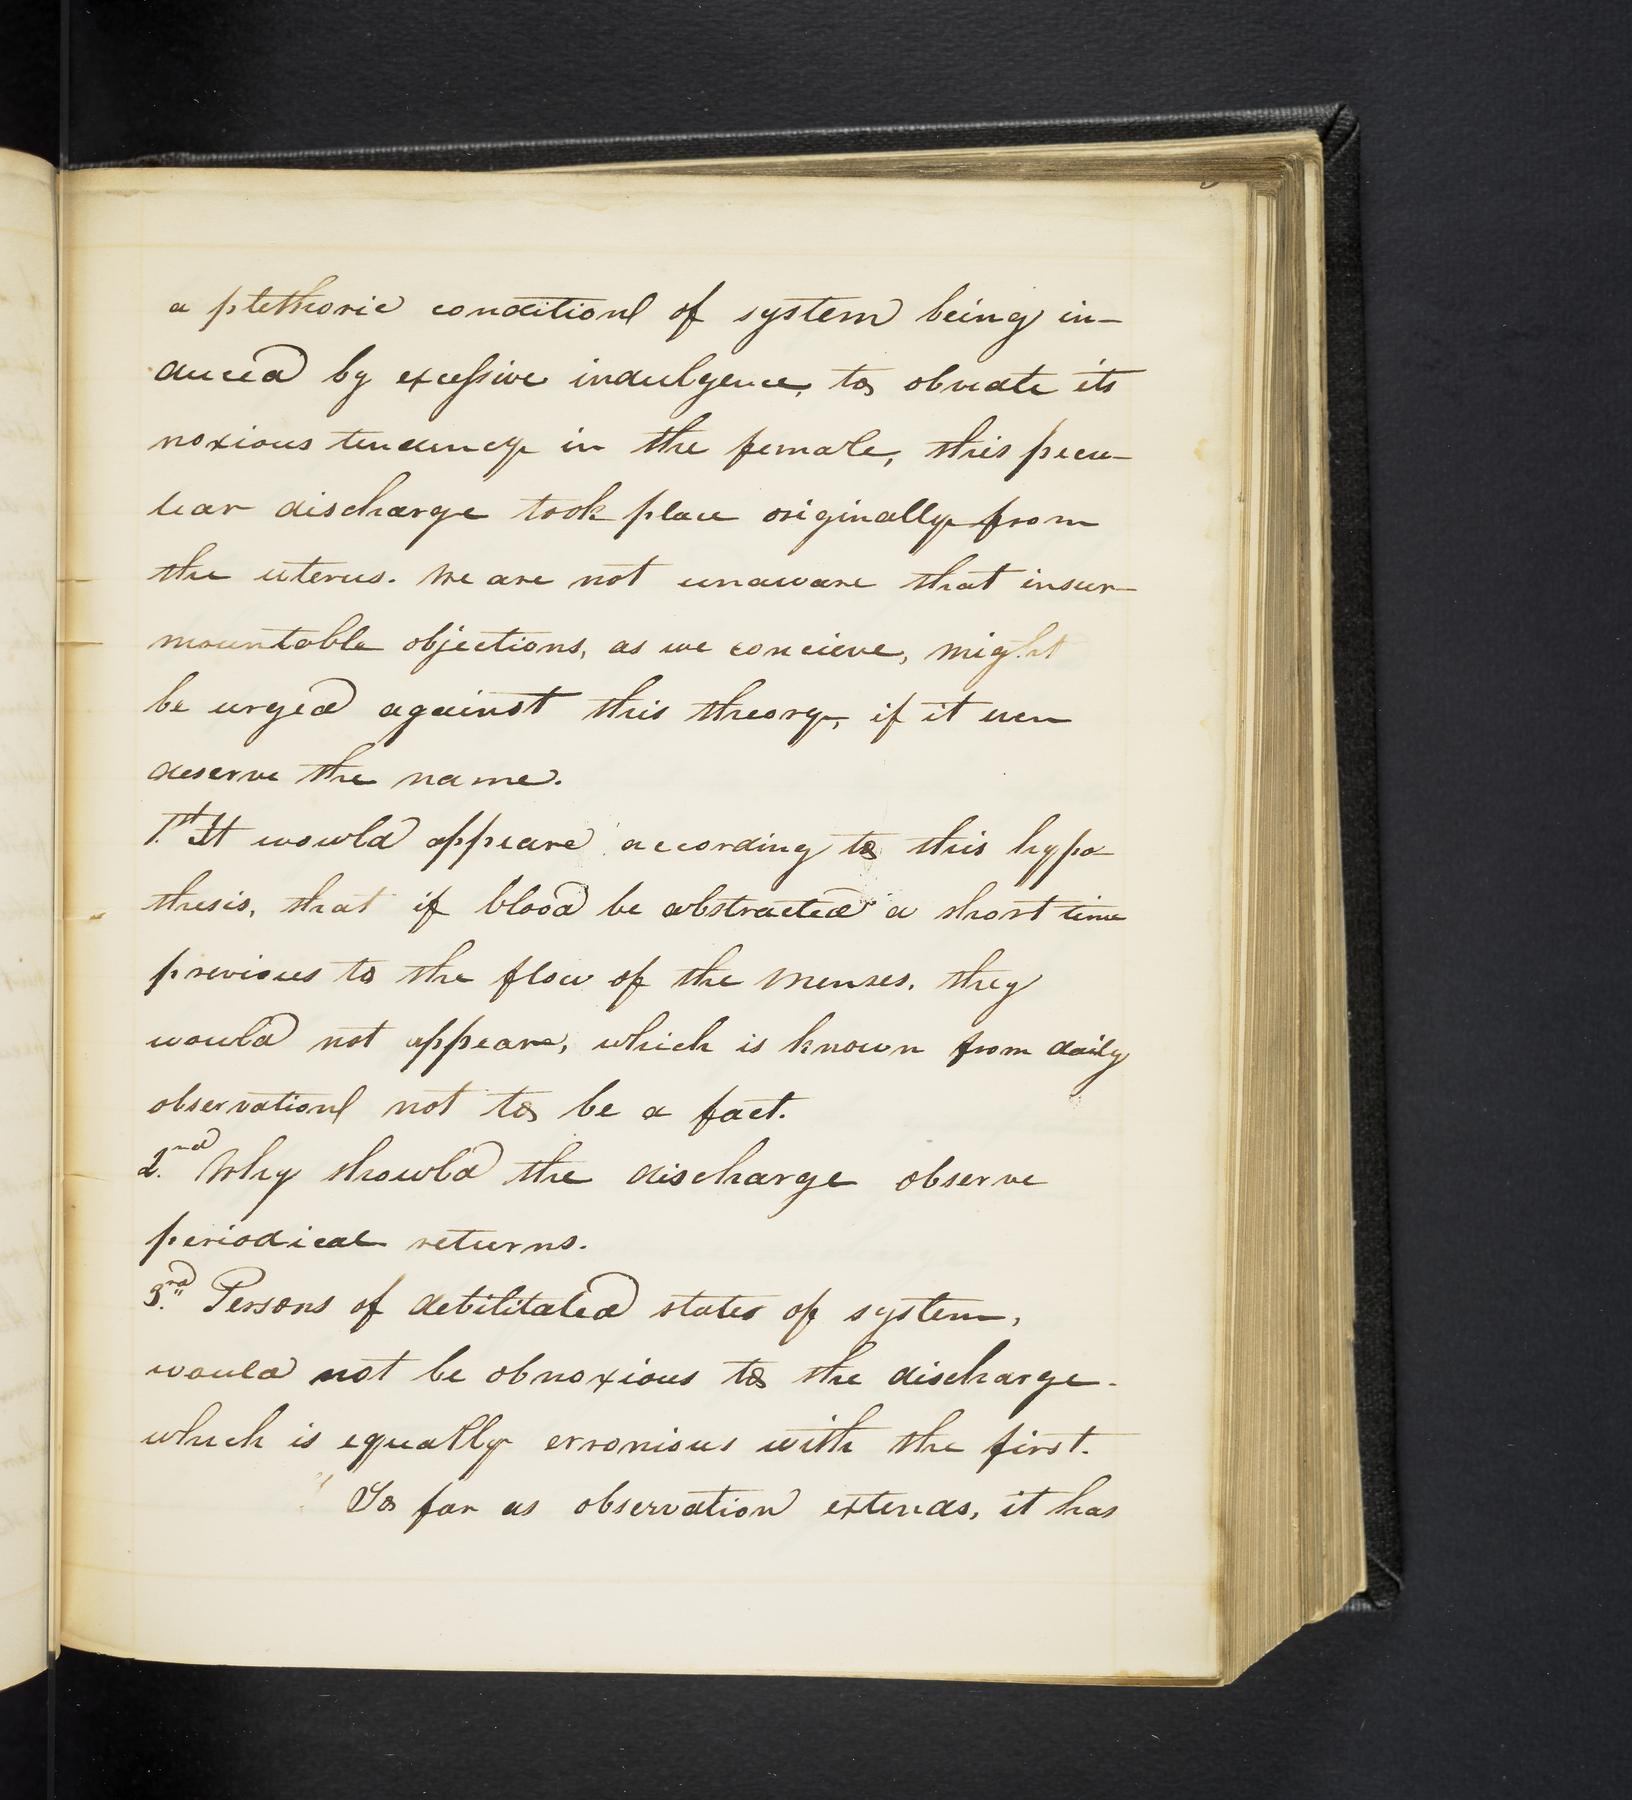 a plethoric condition of system being in-
duced by excessive indulgence, to obviate its
noxious tendency in the female, this pecu-
liar discharge took place originally from
the uterus. We are not unaware that insur-
mountable objections, as we concieve, might
be urged against this theory, if it even
deserve the name.
1.st It would appeare according to this hypo-
thesis, that if blood be abstracted a short time
previous to the flow of the menses, they
would not appeare, which is known from daily
observation not to be a fact.
2.nd Why should the discharge observe
periodical returns.
3.rd Persons of debilitated states of system,
would not be obnoxious to the discharge-
which is equally erronious with the first.
So far as observation extends, it has